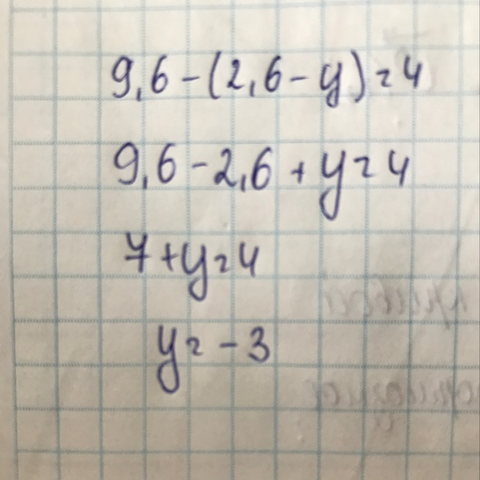 9,6-(2,6-y)=4
9,6-2,6+y=4
7+y=4
y=-3